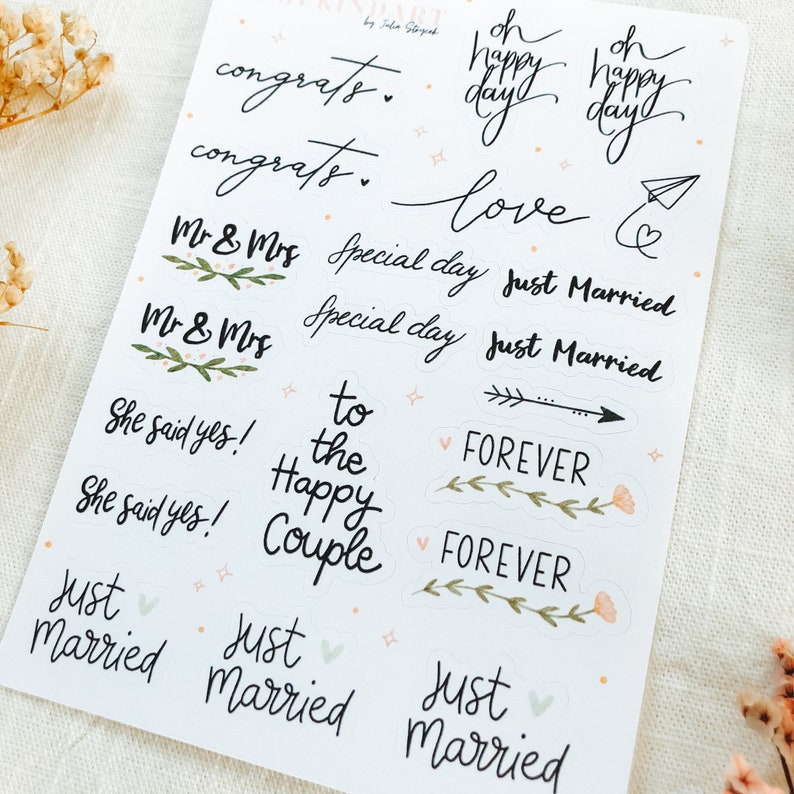 by Julia Stoycek
oh
happy
day
oh
happy
day
congrats
congrats
love
Mr & Mrs
Special day
Just Married
Mr & Mrs
Special day
Just Married
She said yes!
to
the
Happy
Couple
FOREVER
She said yes!
FOREVER
Just
Married
Just
Married
Just
Married